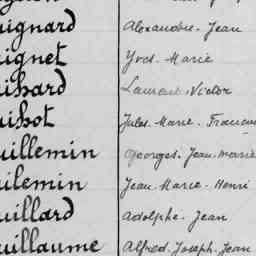 uignard Alexandre - Jean
uignet Yves - Marie
uihard Laurent - Victor
uihot Jules - Marie - 
uillemin Georges - Jean - Marie
uilemin Jean - Marie - Henri
uillard Adolphe - Jean
uillaume Alfred - Joseph - Jean